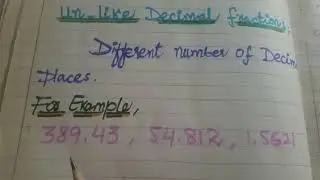 Un-like Decimal fractions.
Different number of Decim
Places.
For Example,
389.43, 54.812, 1.5621